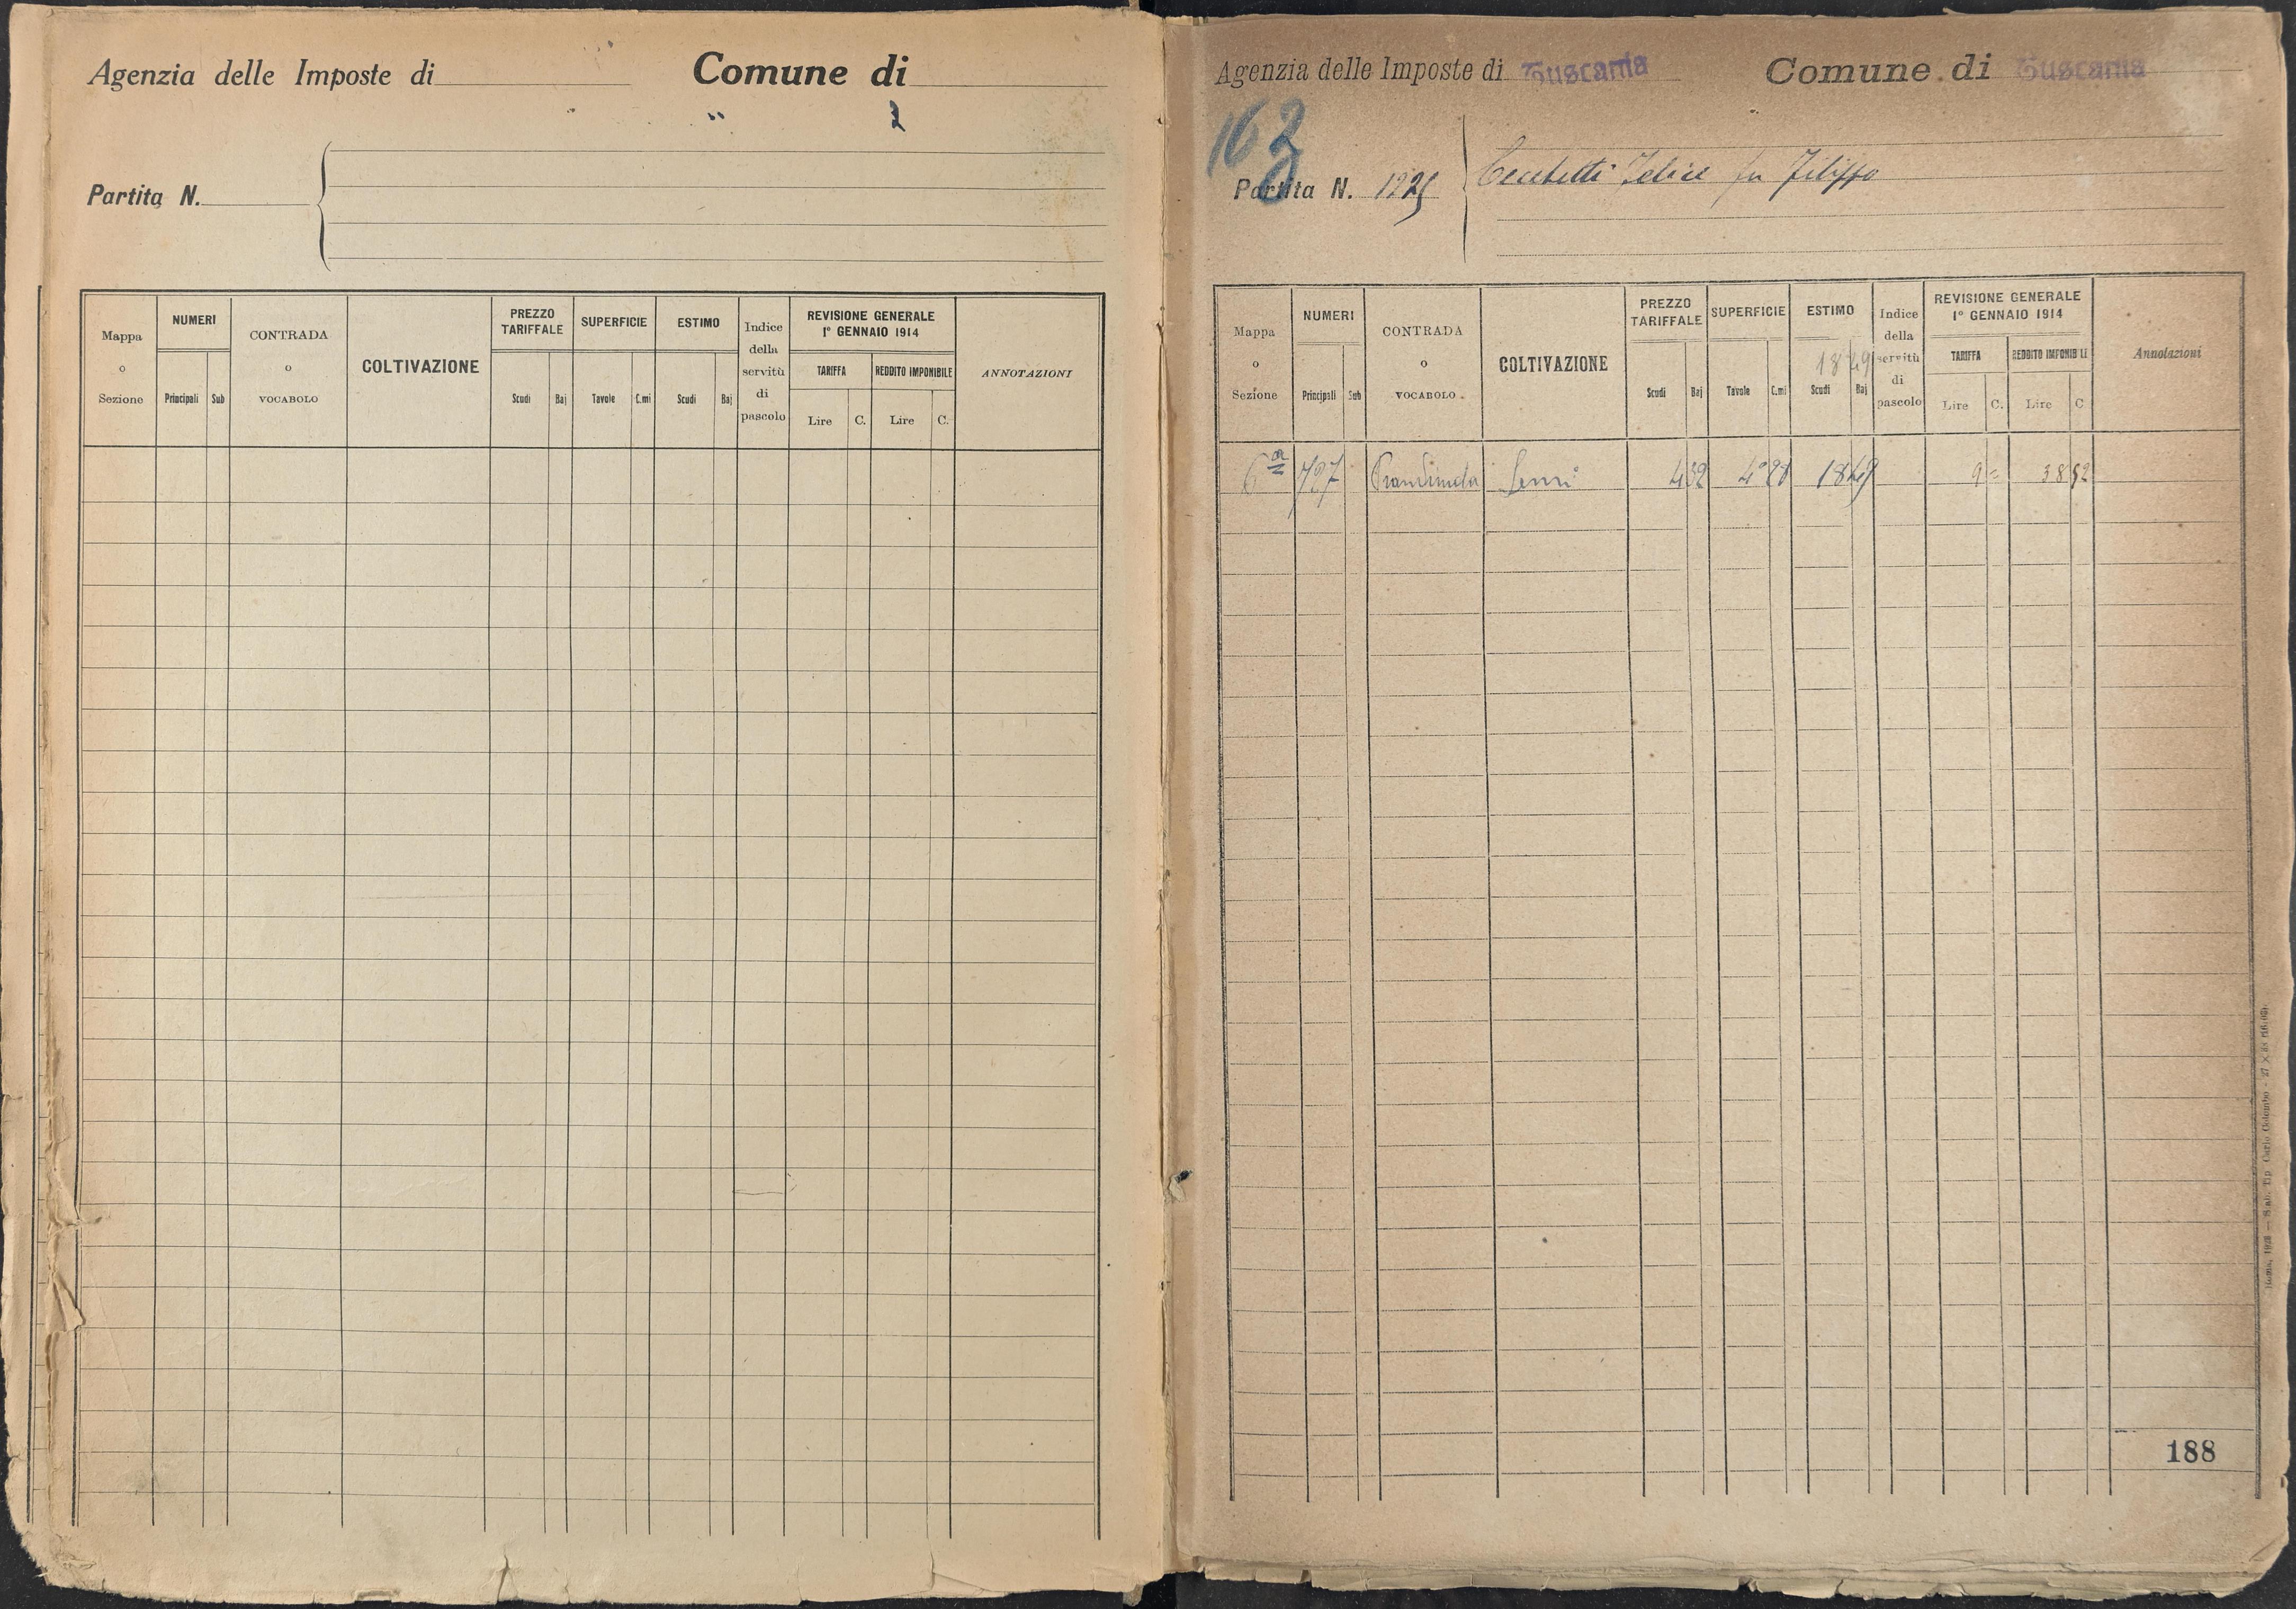 Agenzia delle Imposte di Comune di
Partita N.
Mappa o Sezione NUMERI CONTRADA o VOCABOLO COLTIVAZIONE PREZZO TARIFFALE SUPERFICIE ESTIMO Indice della servitù di pascolo REVISIONE GENERALE 1° GENNAIO 1914 ANNOTAZIONI
TARIFFA REDDITO IMPONIBILE
Principali Sub Scudi Baj Tavole C.mi Scudi Baj Lire C. Lire C.
Agenzia delle Imposte di Tuscania Comune di Tuscania
162
Partita N. 1225 Felice fu Filippo
Mappa o Sezione NUMERI CONTRADA o VOCABOLO COLTIVAZIONE PREZZO TARIFFALE SUPERFICIE ESTIMO Indice della servitù di pascolo REVISIONE GENERALE 1° GENNAIO 1914 Annotazioni
TARIFFA REDDITO IMPONIBILE
18 49
Principali Sub Scudi Baj Tavole C.mi Scudi Baj Lire C. Lire C
6a 727 Semi 4 32 4 28 18 49 9 = 38 52
188